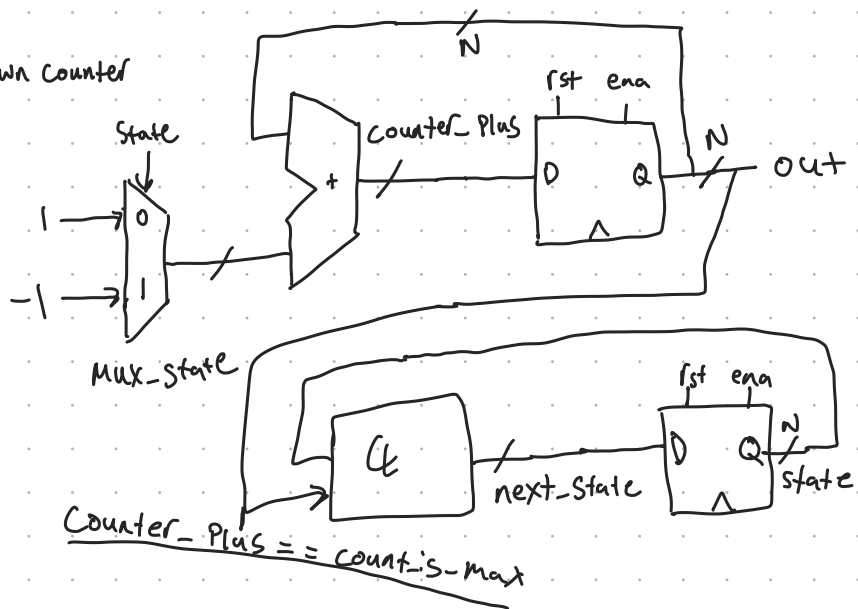 N
wn counter
rst ena
State
Counter_Plus
N
D Q
out
+
1
0
-1
1
Mux_State
rst ena
N
D Q
next_State
state
Counter_Plus == count_is_max